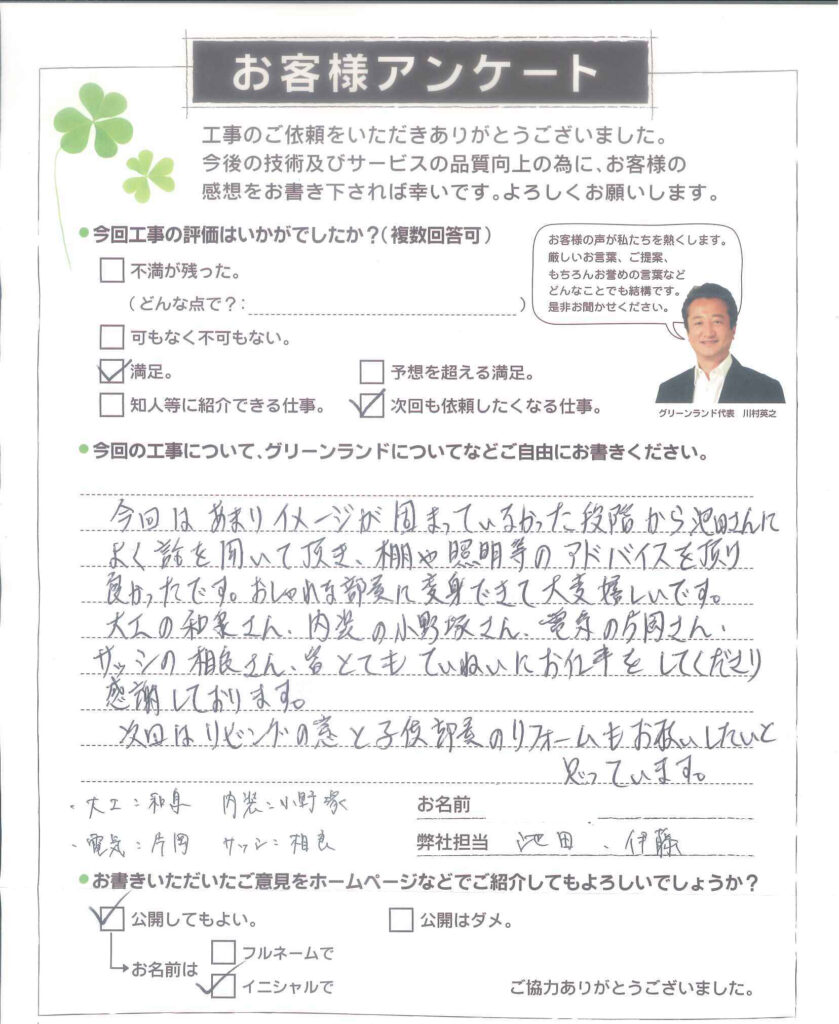 お客様アンケート
工事のご依頼をいただきありがとうございました。
今後の技術及びサービスの品質向上の為に、お客様の
感想をお書き下されば幸いです。よろしくお願いします。
今回工事の評価はいかがでしたか?(複数回答可)
不満が残った。
(どんな点で?: )
可もなく不可もない。
満足。
予想を超える満足。
知人等に紹介できる仕事。
次回も依頼したくなる仕事。
お客様の声が私たちを熱くします。
厳しいお言葉、ご提案、
もちろんお誉めの言葉など
どんなことでも結構です。
是非お聞かせください。
グリーンランド代表 川村英之
今回の工事について、グリーンランドについてなどご自由にお書きください。
今回はあまりイメージが固まっていなかった段階から池田さんに
よく話を聞いて頂き、棚や照明等のアドバイスを頂り
良かったです。おしゃれな部屋に変身できて大変嬉しいです。
大工の和泉さん、内装の小野塚さん、電気の片岡さん、
サッシの相良さん、皆とてもていねいにお仕事をしてくださり
感謝しております。
次回はリビングの窓と子供部屋のリフォームもお願いしたいと
思っています。
・大工:和泉 内装:小野塚
・電気:片岡 サッシ:相良
お名前
弊社担当 池田、伊藤
お書きいただいたご意見をホームページなどでご紹介してもよろしいでしょうか?
公開してもよい。
公開はダメ。
お名前は
フルネームで
イニシャルで
ご協力ありがとうございました。